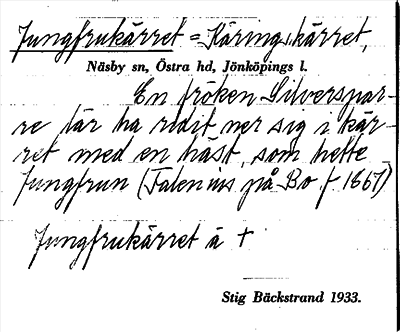 Jungfrukärret = Käringkärret,
Näsby sn, Östra hd, Jönköpings l.
En fröken Silverspar-
re lär ha ridit ner sig i kär-
ret med en häst, som hette
Jungfrun (Talenius på Bo f 1867)
Jungfrukärret ä +
Stig Bäckstrand 1933.